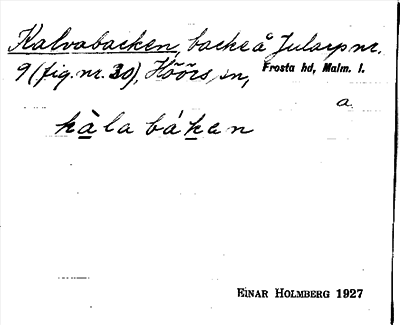 Kalvabacken, backe å Jularp nr.
9 (fig. nr. 30), Höörs sn, Frosta hd, Malm. l.
a.
kàla bákan
EINAR HOLMBERG 1927